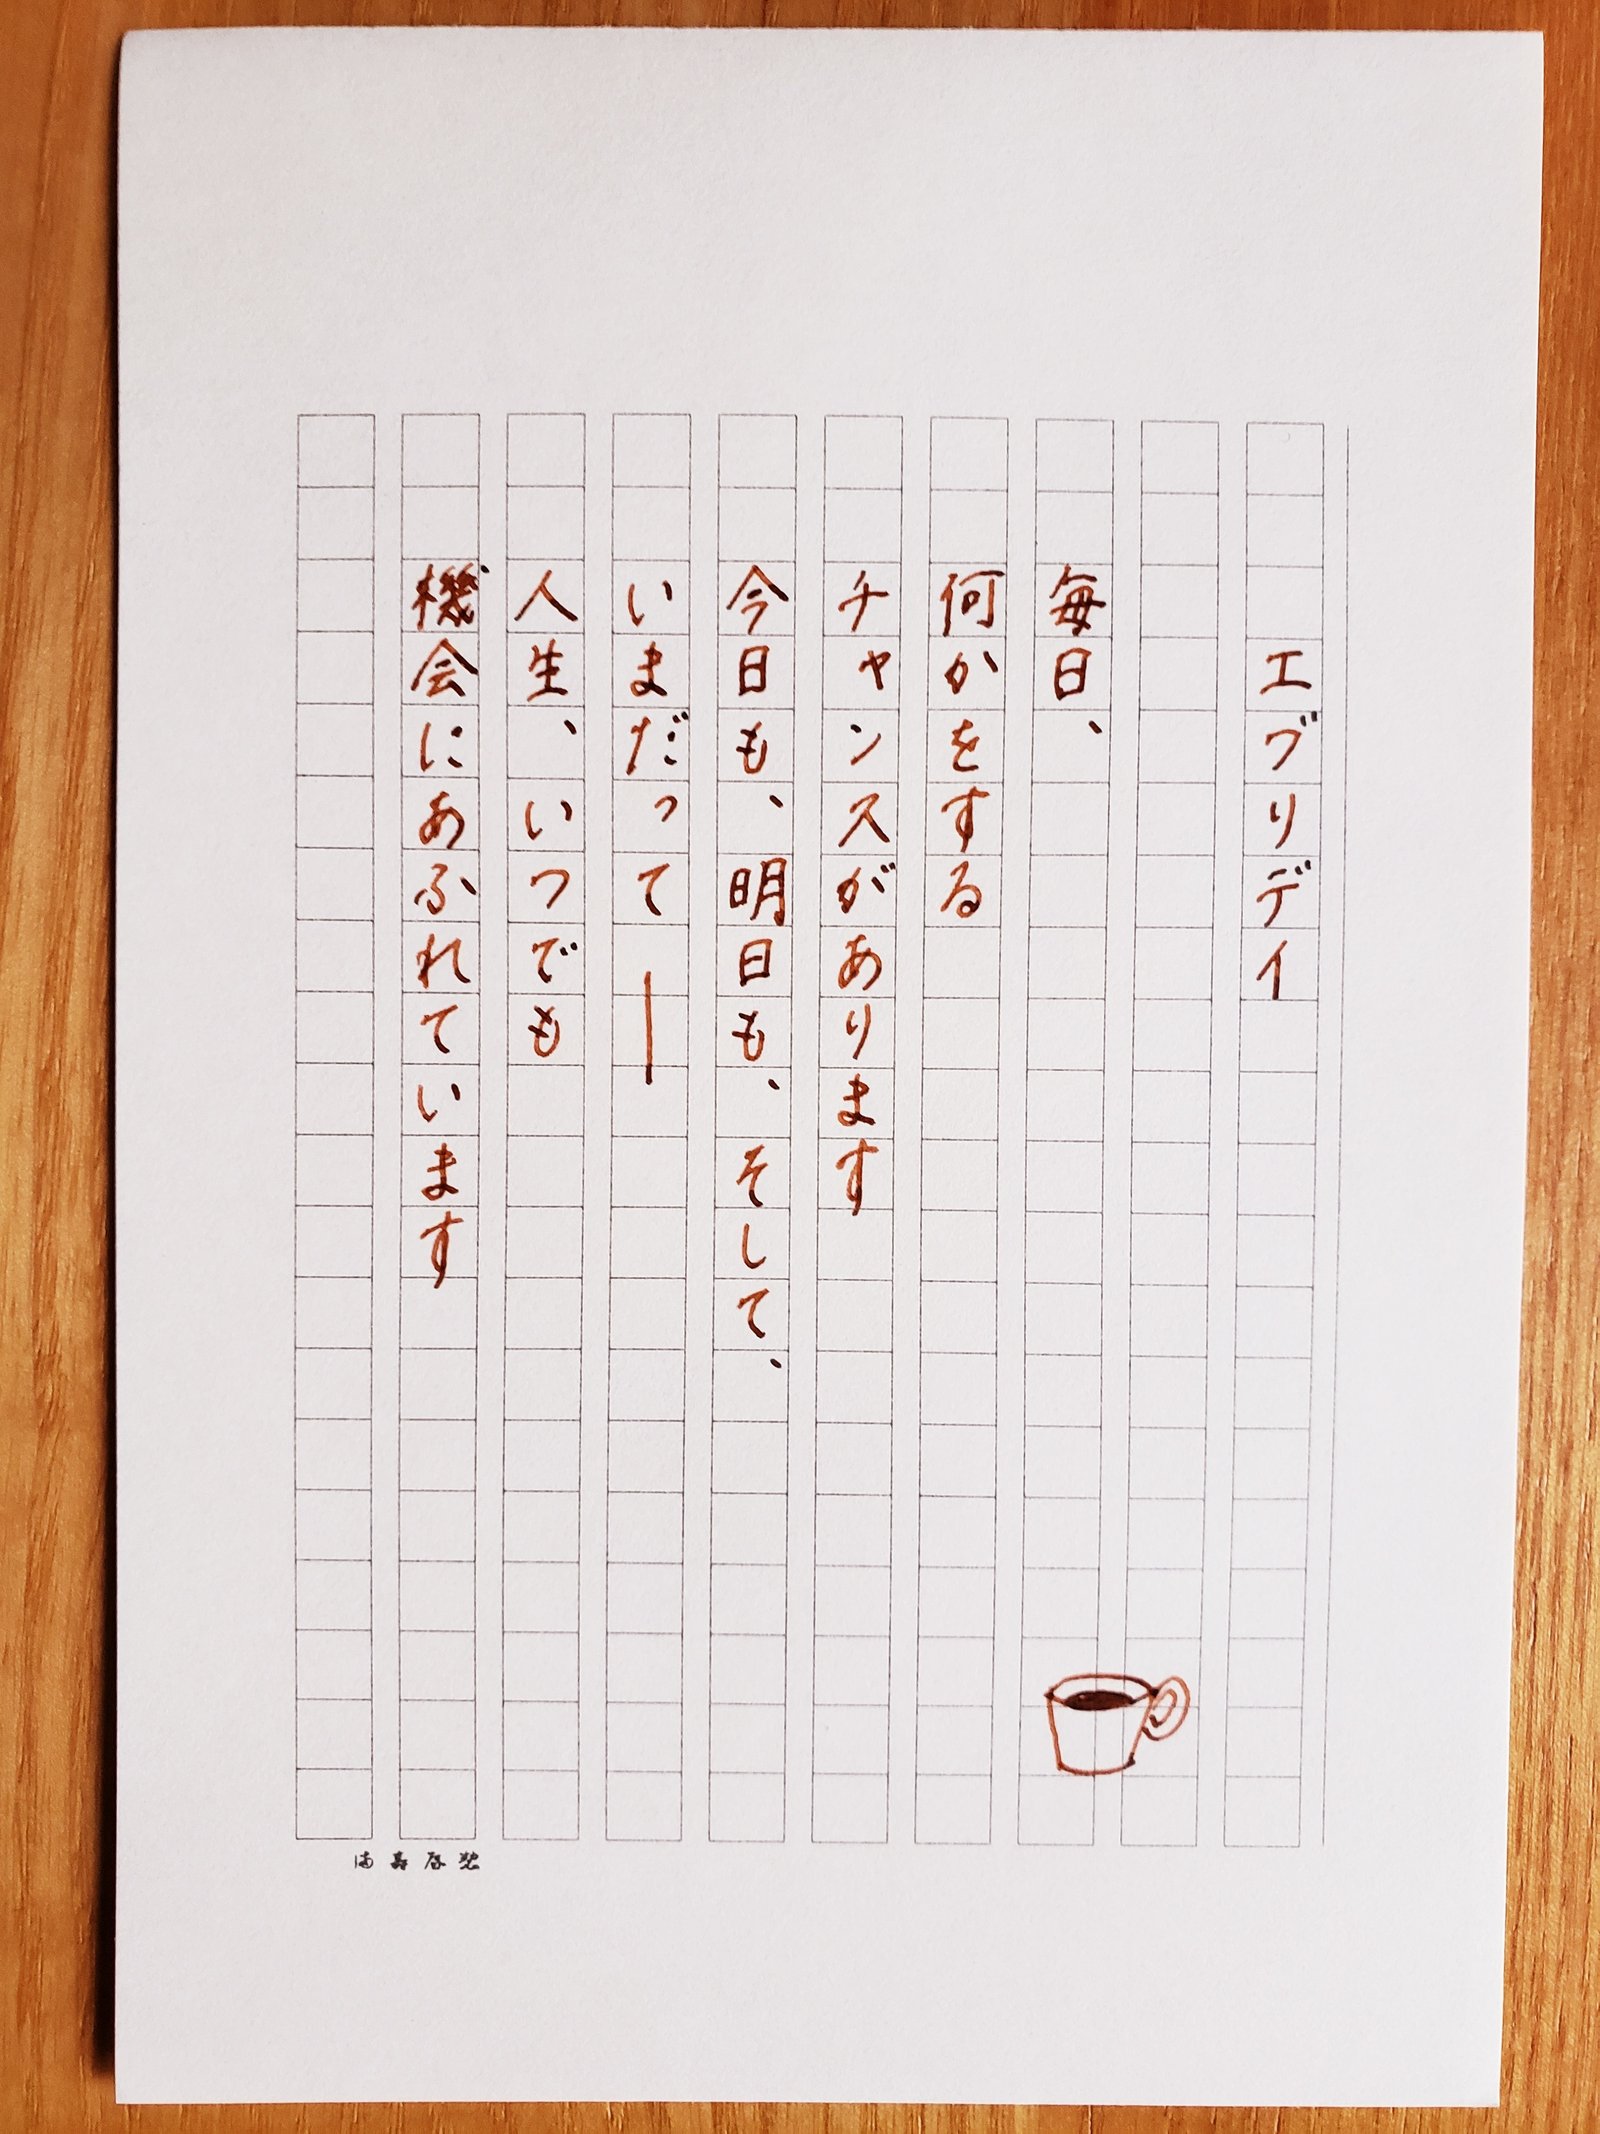 エブリデイ
毎日、
何かをする
チャンスがあります
今日も、明日も、そして、
いまだって――
人生、いつでも
機会にあふれています